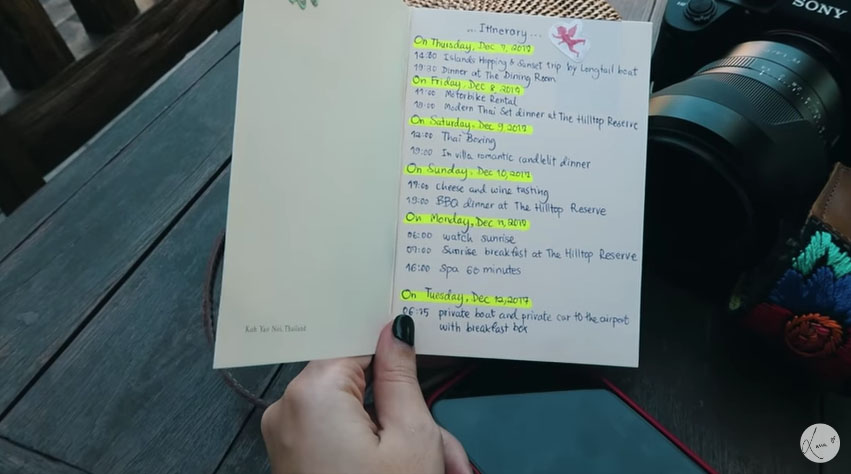 ... Itinerary ...
On Thursday, Dec 7, 2017
Islands Hopping & Sunset trip by Longtail boat
19:30 Dinner at The Dining Room
On Friday, Dec 8, 2017
11:00 Motorbike Rental
19:00 Modern Thai Set dinner at The Hilltop Reserve
On Saturday, Dec 9, 2017
12:00 Thai Boxing
19:00 In villa romantic candlelit dinner
On Sunday, Dec 10, 2017
17:00 cheese and wine tasting
19:00 BBQ dinner at The Hilltop Reserve
On Monday, Dec 11, 2017
06:00 watch sunrise
07:00 Sunrise breakfast at The Hilltop Reserve
16:00 Spa 60 minutes
On Tuesday, Dec 12, 2017
06:15 private boat and private car to the airport
with breakfast box
Koh Yao Noi, Thailand
SONY